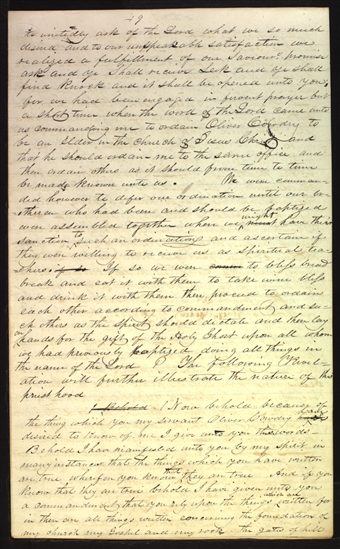 29
to unitedly ask of the Lord what we so much
desired and to our unspeakable satisfaction we
realized a fulfillment of our Saviours promise
ask and ye shall receive seek and ye shall
find knock and it shall be opened unto you,
for we had been engaged in fervent prayer but
a short time when the word of the Lord came unto
us commanding me to ordain Oliver Cowdry to
be an elder in the Church of Jesus Christ and
that he should ordain me to the same office and
then ordain others as it should from time to time
be made known unto us. We were comman-
ded however to defer our ordination until our br-
ethren who had been and should be baptized
were assembled together when we might have their
sanction to such an ordination and ascertain if
they were willing to receive us as spiritual tea-
chers. If so we were to bless bread
break and eat it with them to take wine bless
and drink it with them then proceed to ordain
each other according to commandment and su-
ch others as the Spirit should dictate and then lay
hands for the gift of the Holy Ghost upon all whom
we had previously baptized doing all things in
the name of the Lord The following Revel-
ation will further illustrate the nature of this
priesthood
1 Behold 1 Now behold because of
the thing which you my servant Oliver Cowdry
desired to know of me I give unto you these words.
Behold I have manifested unto you by my spirit in
many instances that the things which you have written
are true wherefore you know that they are true And if you
know that they are true behold I have given unto you
a commandment that you rely upon the things which are written for
in them are all things written concerning the foundation of
my church my Gospel and my rock the gates of hell